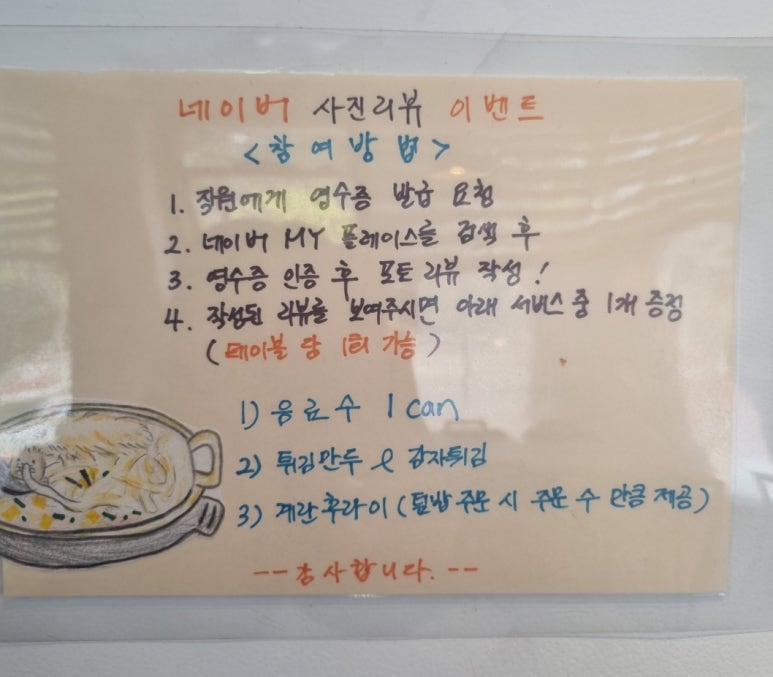 네이버 사진리뷰 이벤트
<참여방법>
1. 직원에게 영수증 발급 요청
2. 네이버 MY 플레이스를 검색 후
3. 영수증 인증 후 포토리뷰 작성!
4. 작성된 리뷰를 보여주시면 아래 서비스 중 1개 증정
(테이블 당 1회 가능)
1) 음료수 1 can
2) 튀김만두 & 감자튀김
3) 계란후라이 (덮밥 주문 시 주문 수 만큼 제공)
-- 감사합니다. --